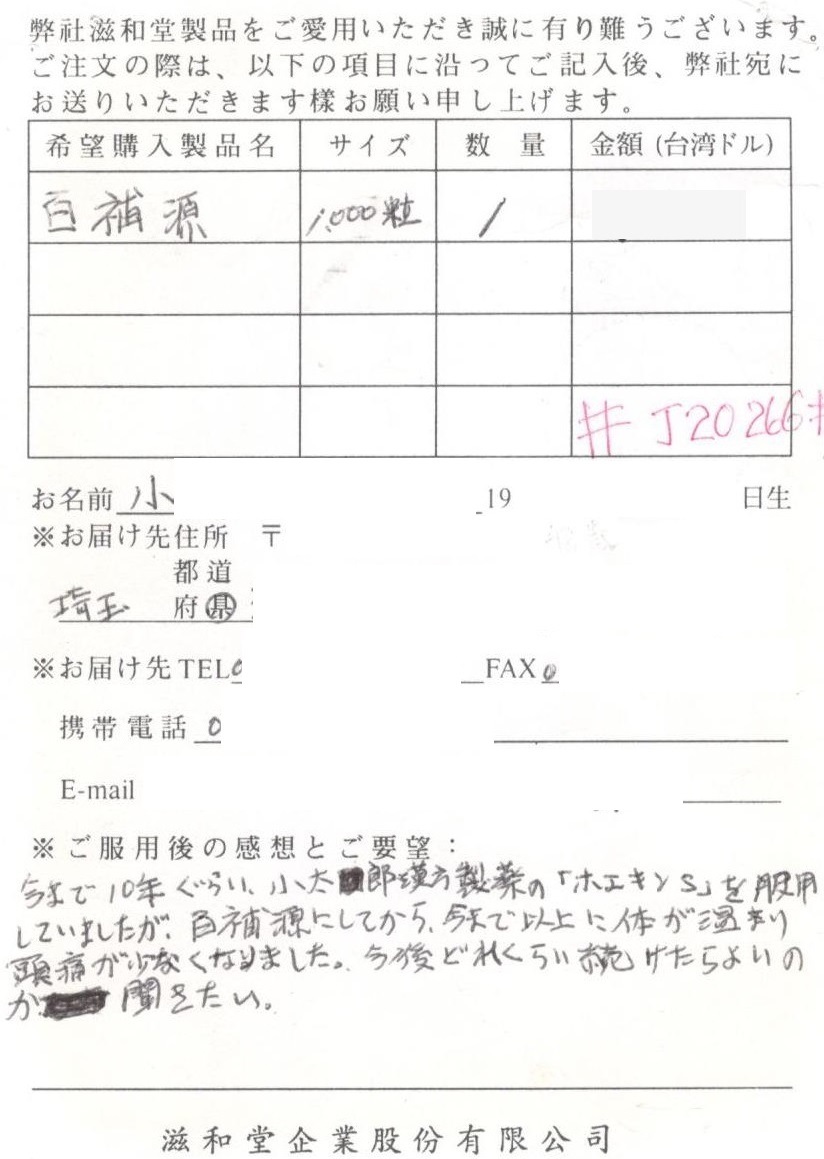 弊社滋和堂製品をご愛用いただき誠に有り難うございます。
ご注文の際は、以下の項目に沿ってご記入後、弊社宛に
お送りいただきます様お願い申し上げます。
希望購入製品名 サイズ 数量 金額(台湾ドル)
百補源 1,000粒 1
# J20266#
お名前 小 19 日生
※お届け先住所 〒
都道
埼玉 府県
※お届け先TEL0 FAX0
携帯電話 0
E-mail
※ご服用後の感想とご要望：
今まで10年ぐらい、小太郎漢方製薬の「ホエキンS」を服用
していましたが、百補源にしてから、今まで以上に体が温まり
頭痛が少なくなりました。今後どれくらい続けたらよいの
か 聞きたい。
滋和堂企業股份有限公司